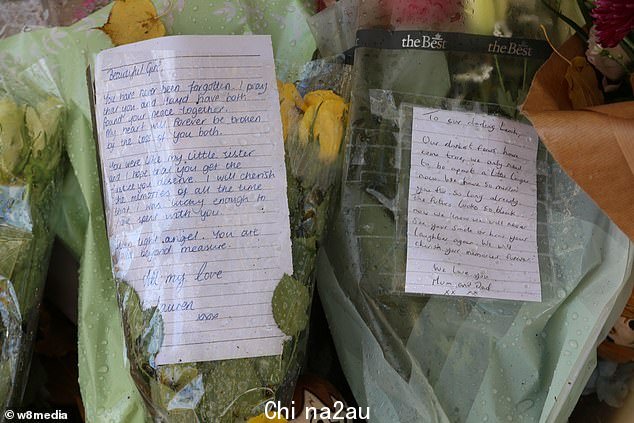 the Best
the Best
Beautiful Girl
You have never been forgotten. I pray
that you and have both
found your peace together.
My heart will forever be broken
by the loss of you both.
You were like my little sister
and I hope that you get the
justice you deserve. I will cherish
the memories of all the time
that I was lucky enough to
have spent with you.
light angel. You are
beyond measure.
All my Love
Lauren
xoxo
To our darling
Our darkest fears have
come true, we only need
to be apart a little longer
now. We have so missed
you for so long already
the future looks so bleak
now we know you will never
see your smile or hear your
laughter again. We will
cherish your memories forever.
We love you
Mum and Dad
xx
© w8media
Chi na2au